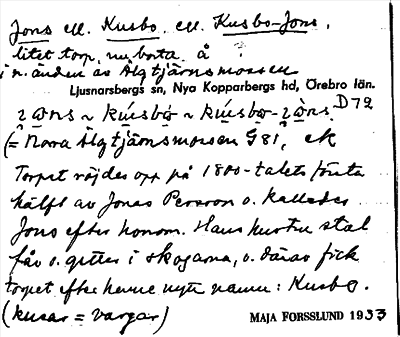 Jons ell. Kusbo ell. Kusbo-Jons,
litet torp, nu borta, å
i n. änden av Älgtjärnsmossen
Ljusnarsbergs sn, Nya Kopparbergs hd, Örebro län.
D 72
(= Norra Älgtjärnsmossen G 81, ek
Torpet röjdes opp på 1800-talets första
hälft av Jonas Persson o. kallades
Jons efter honom. Hans hustru stal
får o. getter i skogarna, o. därav fick
torpet efter henne nytt namn: Kusbo.
(kusar = vargar)
MAJA FORSSLUND 1933